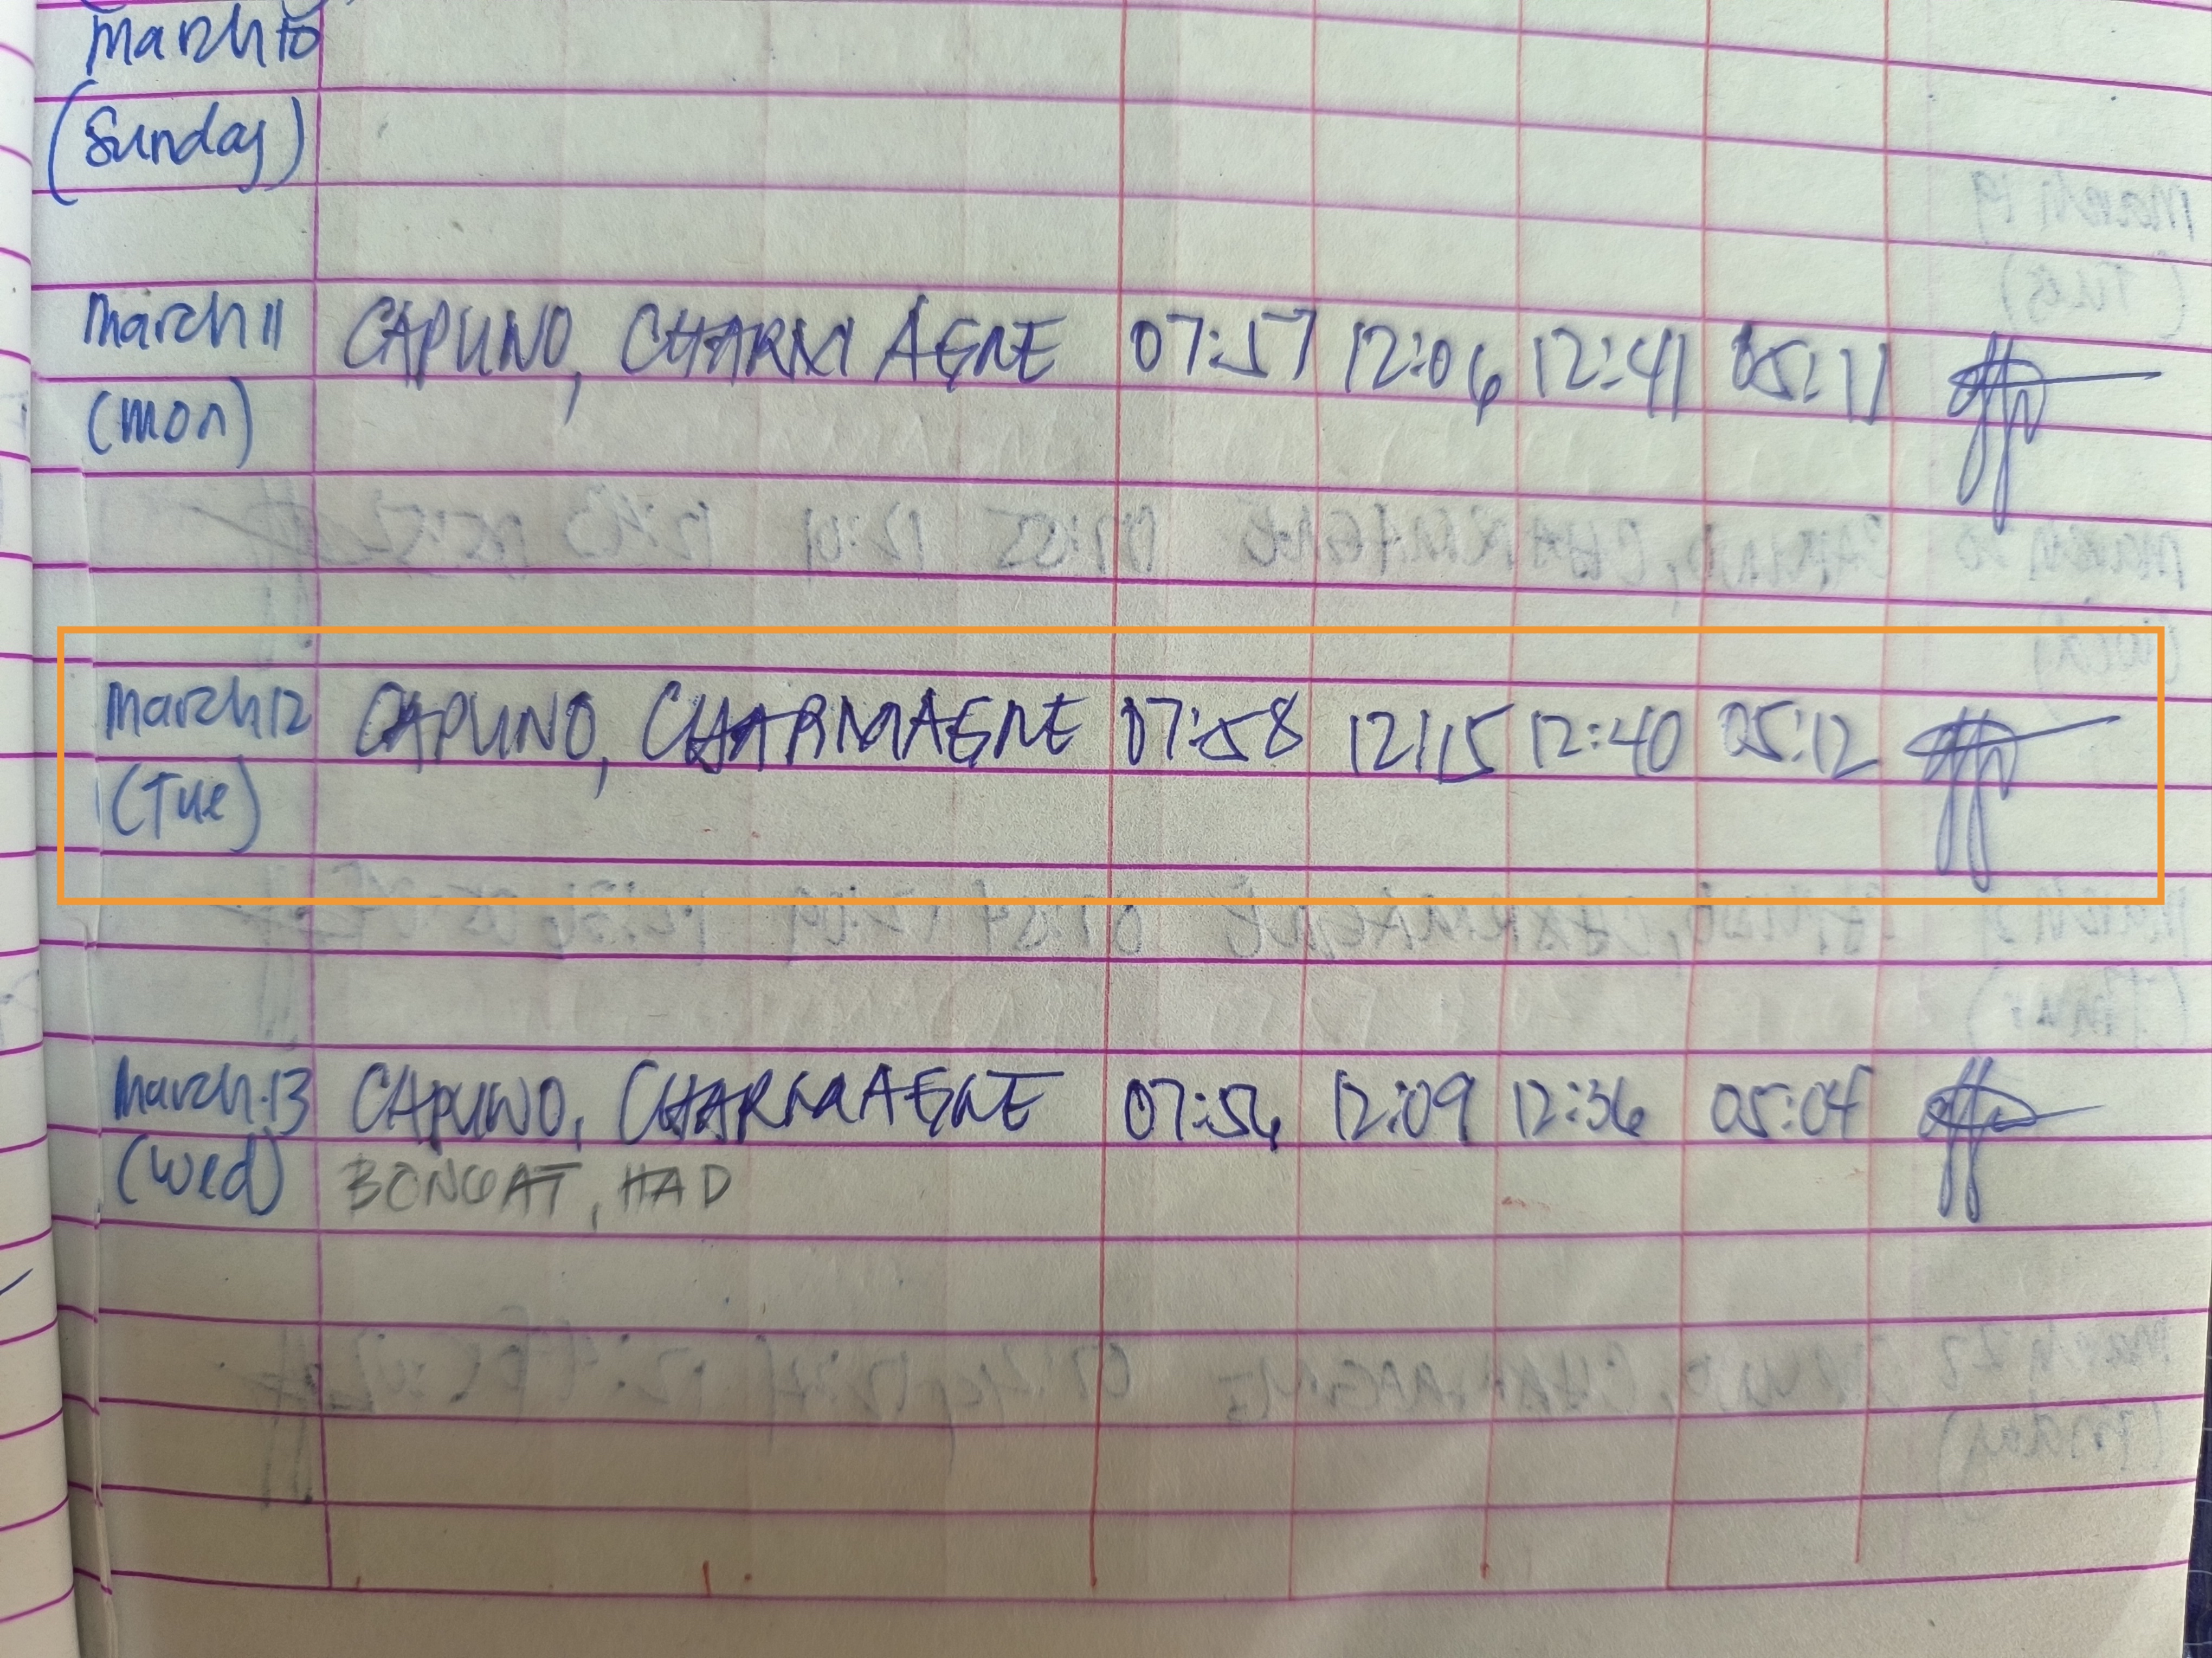 March 10
(Sunday)
March 11 CAPUNO, CHARMAGNE 07:57 12:06 12:41 05:11
(Mon)
March 12 CAPUNO, CHARMAGNE 07:58 12:15 12:40 05:12
(Tue)
March 13 CAPUNO, CHARMAGNE 07:56 12:09 12:36 05:04
(Wed) BONGAT, HAD